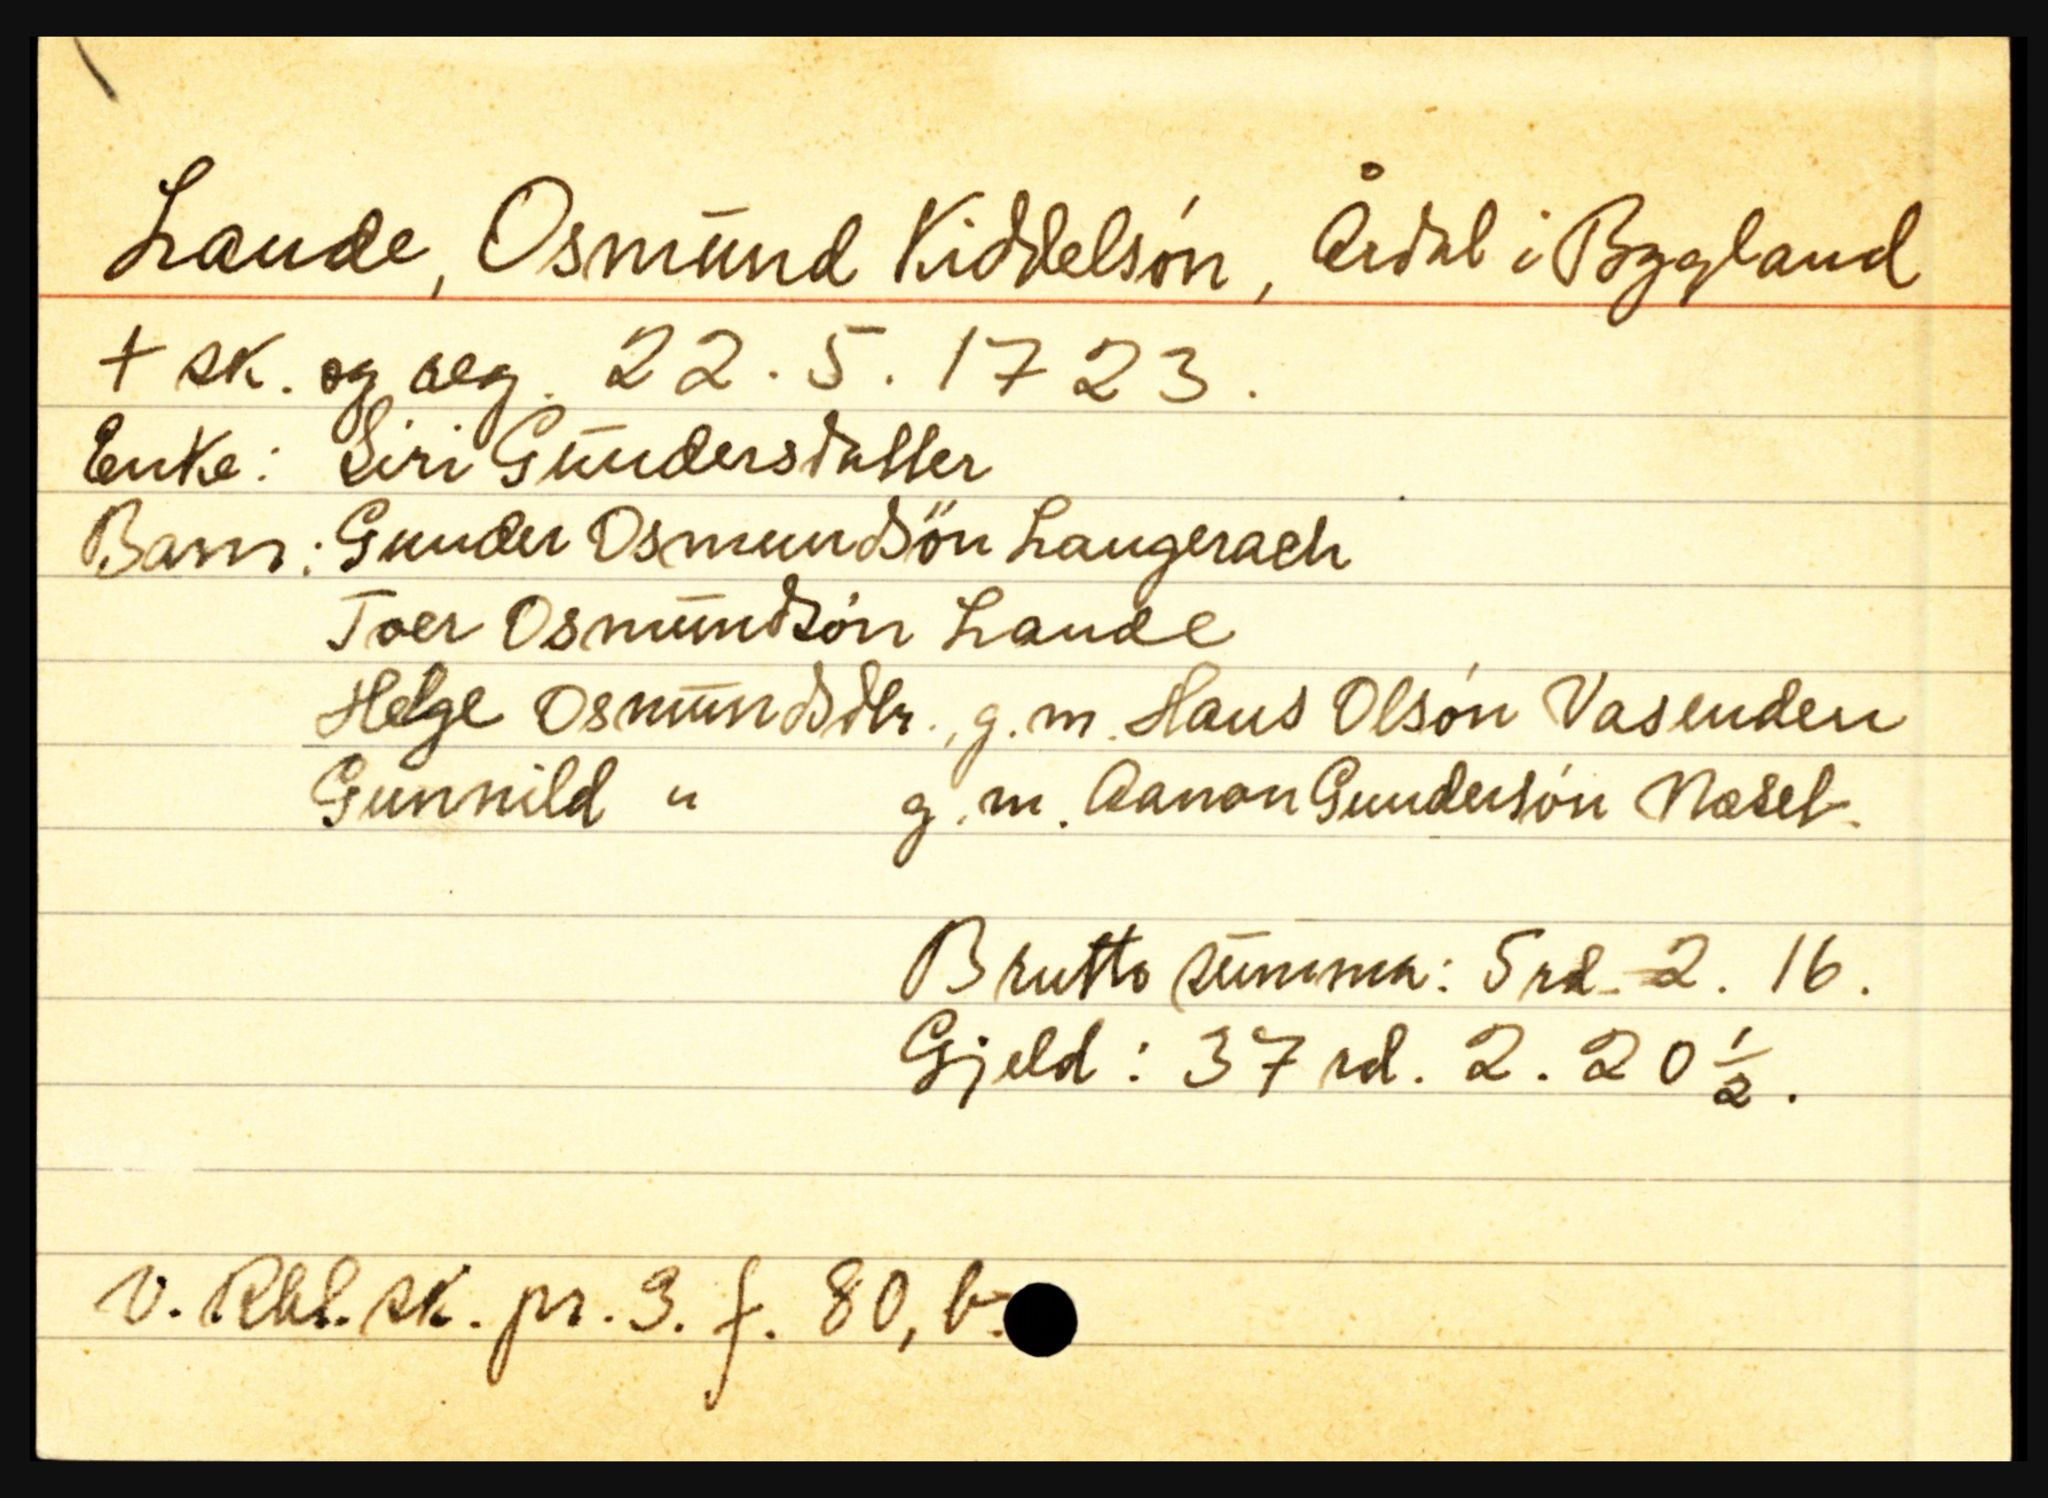 Lande, Osmund Kiddelsón, Årdal i Bygland
+ sk. og reg. 22.5.1723.
Enke: Siri Gundersdatter
Barn: Gunder Osmundsön Langerach
Toer Osmundsón Lande
Helge Osmundsdtr., g.m. Hans Olsón Vasenden
Gunnild " g.m. Aanon Gundersón Næset.
Brutto summa: 5 rd. 2. 16.
Gjeld: 37 rd. 2. 20 1/2.
V. Rbl. sk. pr. 3. f. 80, b.